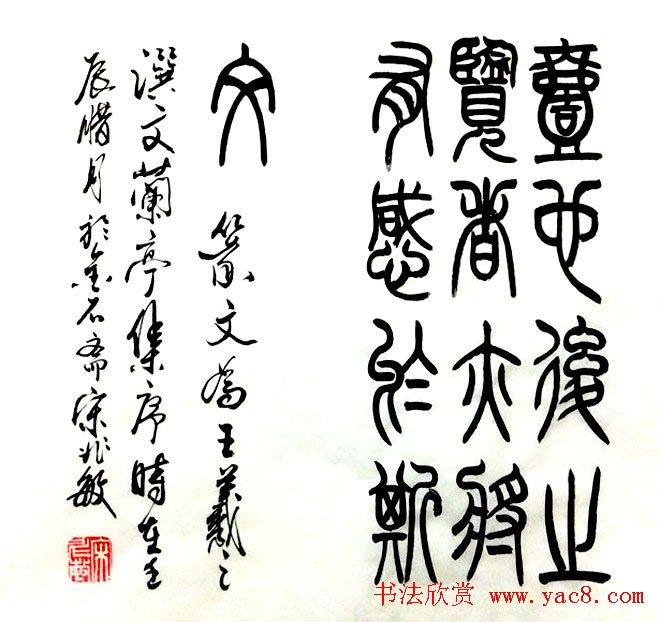 壹也後之
覽者亦將
有感於斯
文 篆文為王羲之
撰文蘭亭集序時在壬
辰腊月於金石斋宋兆敏
书法欣赏 www.yac8.com